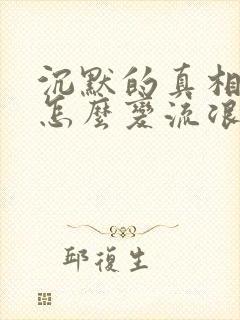 沉默的真相
怎麼變流浪
邱復生